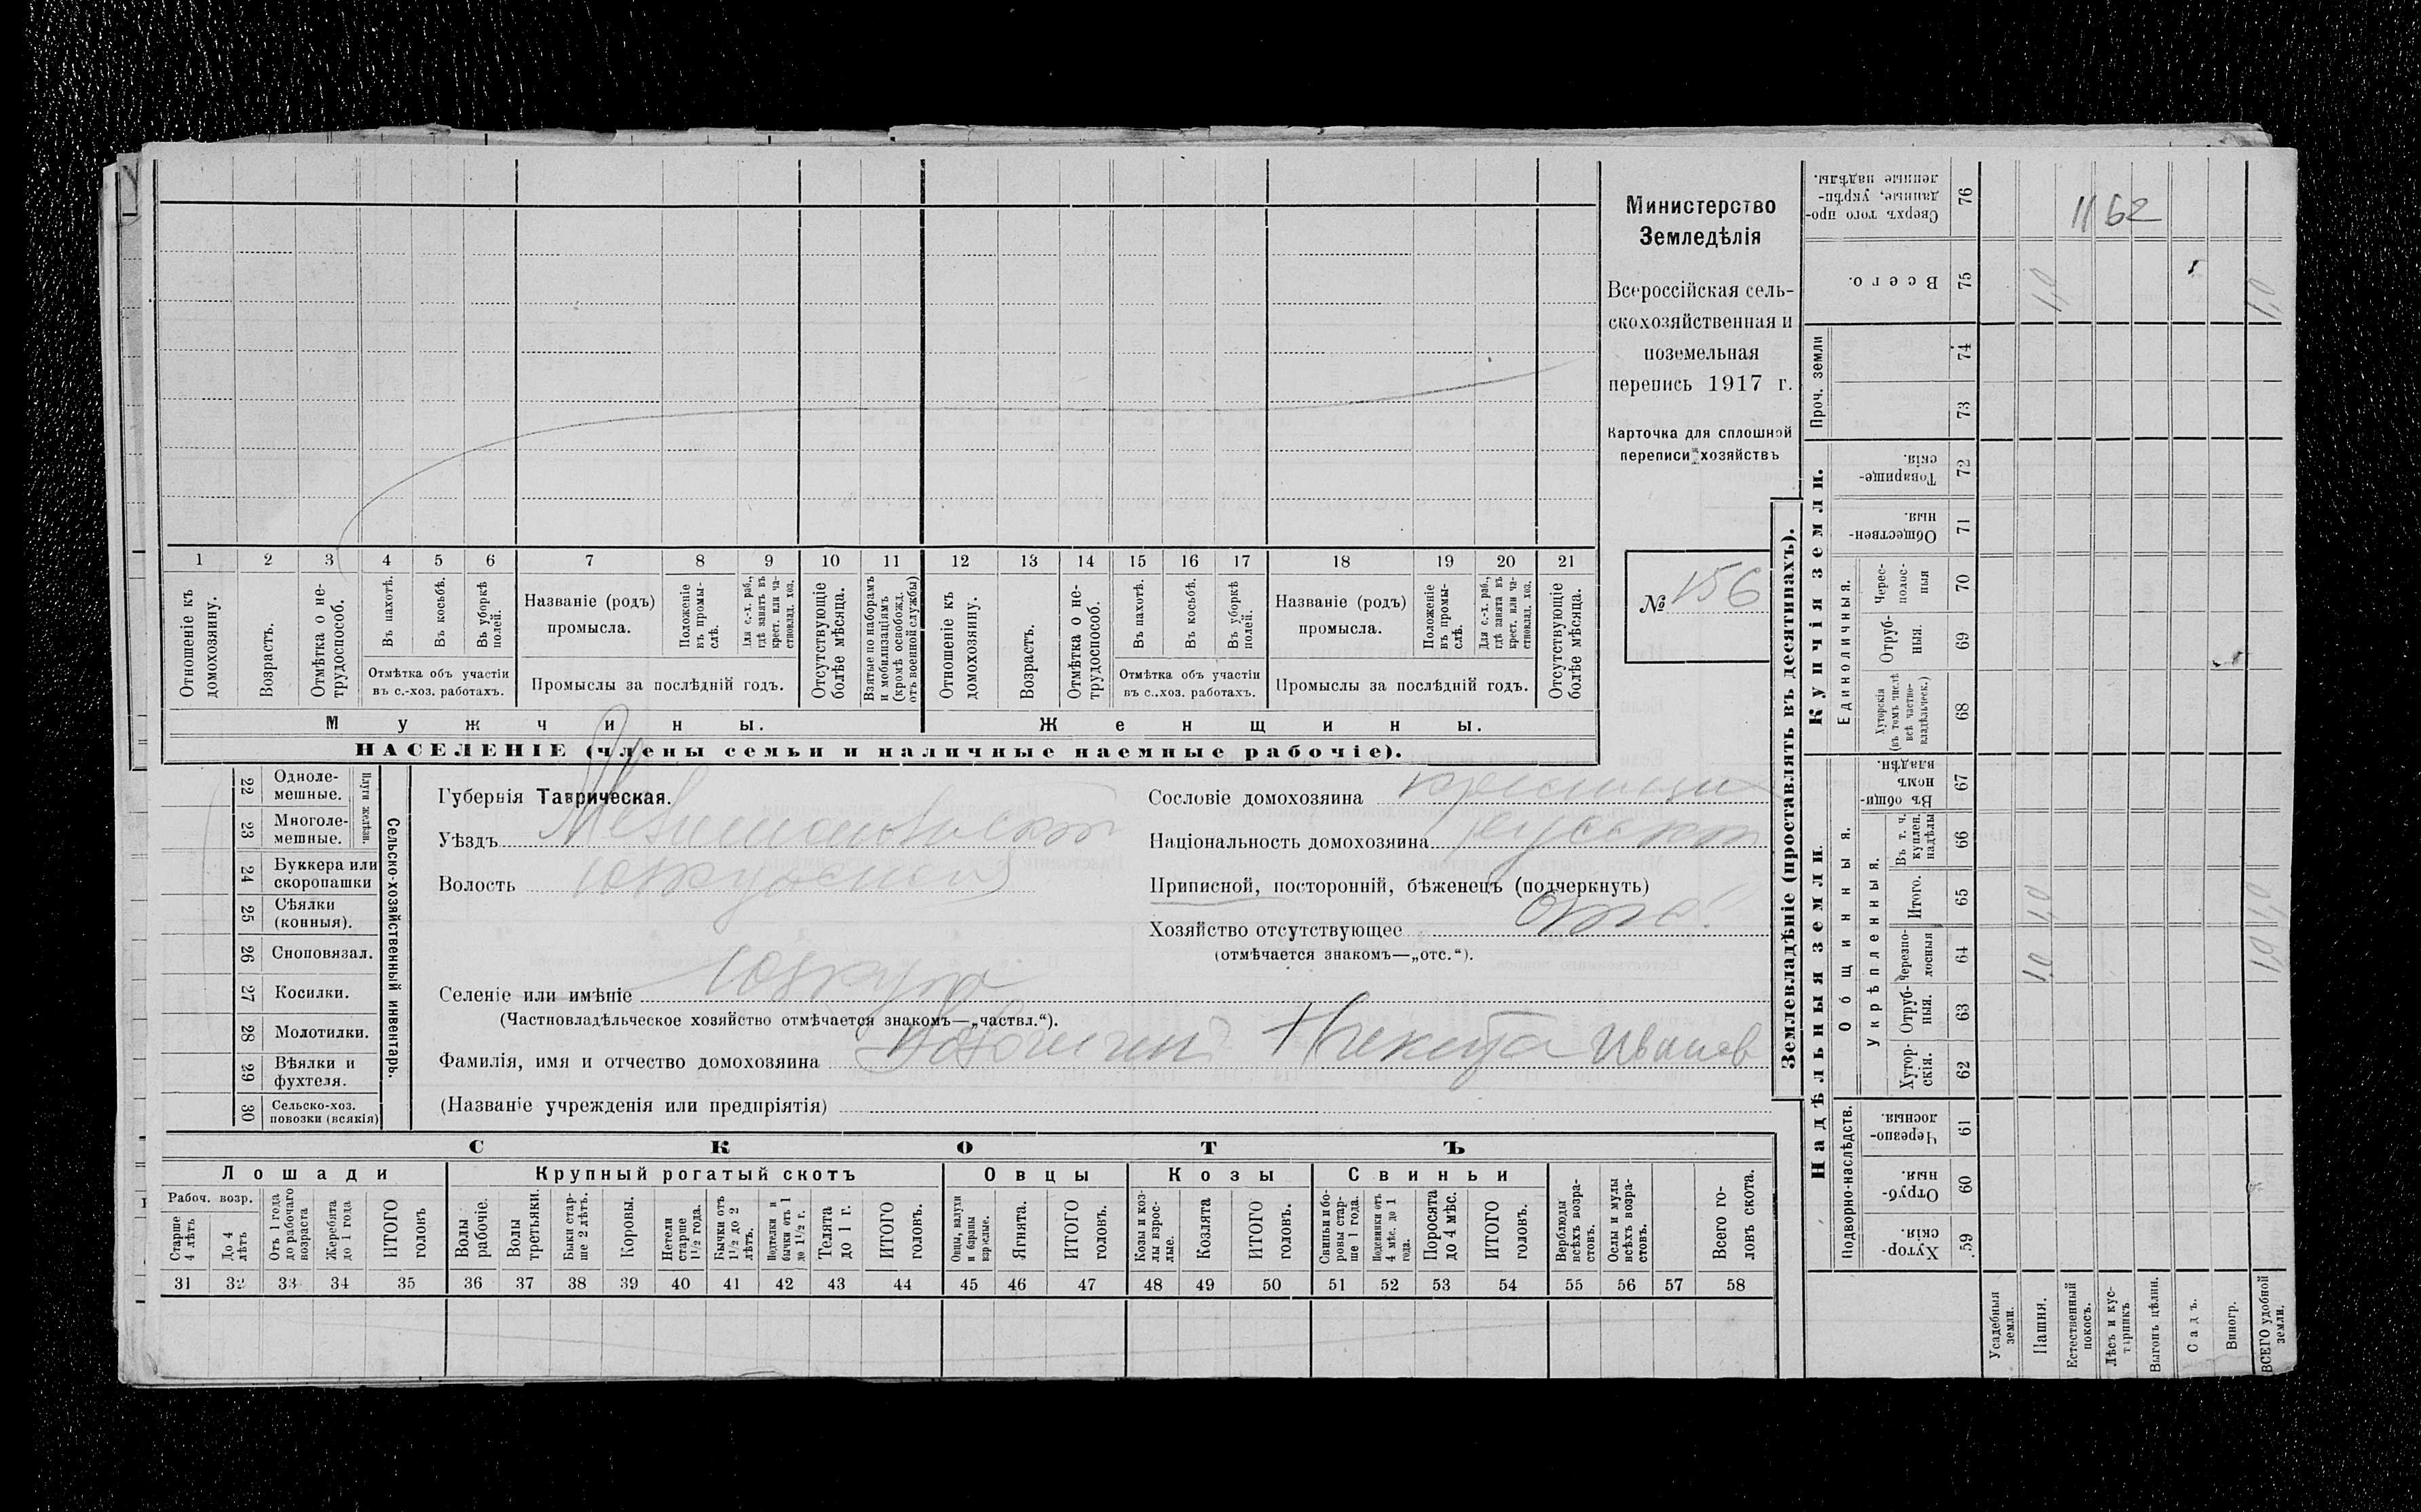 Министерство
Земледѣлія
Всероссійская сель-
скохозяйственная и
поземельная
перепись 1917 г.
Карточка для сплошной
переписи хозяйствъ
№ 156
1 2 3 4 5 6 7 8 9 10 11 12 13 14 15 16 17 18 19 20 21
Отношеніе къ домохозяину.
Возрастъ.
Отмѣтка о не-трудоспособ.
Въ пахотѣ.
Въ косьбѣ.
Въ уборкѣ полей.
Отмѣтка объ участіи
въ с.-хоз. работахъ.
Названіе (родъ)
промысла.
Положеніе въ промы-слѣ.
Для с.-х. раб., гдѣ занятъ въ крест. или ча-стновлад. хоз.
Промыслы за послѣдній годъ.
Отсутствующіе болѣе мѣсяца.
Взятые по наборамъ и мобилизаціямъ (кромѣ освобожд. отъ военной службы)
Отношеніе къ домохозяину.
Возрастъ.
Отмѣтка о не-трудоспособ.
Въ пахотѣ.
Въ косьбѣ.
Въ уборкѣ полей.
Отмѣтка объ участіи
въ с.-хоз. работахъ.
Названіе (родъ)
промысла.
Положеніе въ промы-слѣ.
Для с.-х. раб., гдѣ занята въ крест. или ча-стновлад. хоз.
Промыслы за послѣдній годъ.
Отсутствующіе болѣе мѣсяца.
Мужчины.
Женщины.
НАСЕЛЕНІЕ (члены семьи и наличные наемные рабочіе).
22 Одноле-мешные.
23 Многоле-мешные.
Плуги желѣзн.
24 Буккера или скоропашки
25 Сѣялки (конныя).
26 Сноповязал.
27 Косилки.
28 Молотилки.
29 Вѣялки и фухтеля.
30 Сельско-хоз. повозки (всякія)
Сельско-хозяйственный инвентарь.
Губернія Таврическая.
Уѣздъ Мелитопольскій
Волость
Селеніе или имѣніе
(Частновладѣльческое хозяйство отмѣчается знакомъ—„частвл.“).
Фамилія, имя и отчество домохозяина Никита Иванов
(Названіе учрежденія или предпріятія)
Сословіе домохозяина
Національность домохозяина русскій
Приписной, посторонній, бѣженецъ (подчеркнуть)
Хозяйство отсутствующее
(отмѣчается знакомъ—„отс.“).
СКОТЪ
Лошади
Крупный рогатый скотъ
Овцы
Козы
Свиньи
Рабоч. возр.
Старше 4 лѣтъ
До 4 лѣтъ
Отъ 1 года до рабочаго возраста
Жеребята до 1 года
ИТОГО головъ
Волы рабочіе.
Волы третьяки.
Быки стар-ше 2 лѣтъ.
Коровы.
Нетели старше 1½ года.
Бычки отъ 1½ до 2 лѣтъ.
Подтелки и бычки отъ 1 до 1½ г.
Телята до 1 г.
ИТОГО головъ.
Овцы, валухи и бараны взрослые.
Ягнята.
ИТОГО головъ.
Козы и коз-лы взрос-лые.
Козлята
ИТОГО головъ.
Свиньи и бо-ровы стар-ше 1 года.
Подсвинки отъ 4 мѣс. до 1 года.
Поросята до 4 мѣс.
ИТОГО головъ.
Верблюды всѣхъ возра-стовъ.
Ослы и мулы всѣхъ возра-стовъ.
Всего го-ловъ скота.
31 32 33 34 35 36 37 38 39 40 41 42 43 44 45 46 47 48 49 50 51 52 53 54 55 56 57 58
Землевладѣніе (проставлять въ десятинахъ).
Надѣльныя земли.
Купчія земли.
Проч. земли
Подворно-наслѣдств.
Общинныя.
Укрѣпленныя.
Единоличныя.
59 Хутор-скія.
60 Отруб-ныя.
61 Черезпо-лосныя.
62 Хутор-скія.
63 Отруб-ныя.
64 Черезпо-лосныя 1,0
65 Итого. 1,0 1,0
66 Въ т. ч. куплен. надѣлы
67 Въ общи-номъ владѣн.
68 Хуторскія (въ томъ числѣ всѣ частно-владѣльческ.)
69 Отруб-ныя.
70 Черес-полос-ныя
71 Обществен-ныя.
72 Товарище-скія.
73
74
75 Всего. 1,0 1,0
76 Сверхъ того про-данные, укрѣп-ленные надѣлы.
1162
Усадебныя земли.
Пашня.
Естественный покосъ.
Лѣсъ и кус-тарникъ
Выгонъ цѣлин.
Садъ.
Виногр.
ВСЕГО удобной земли.